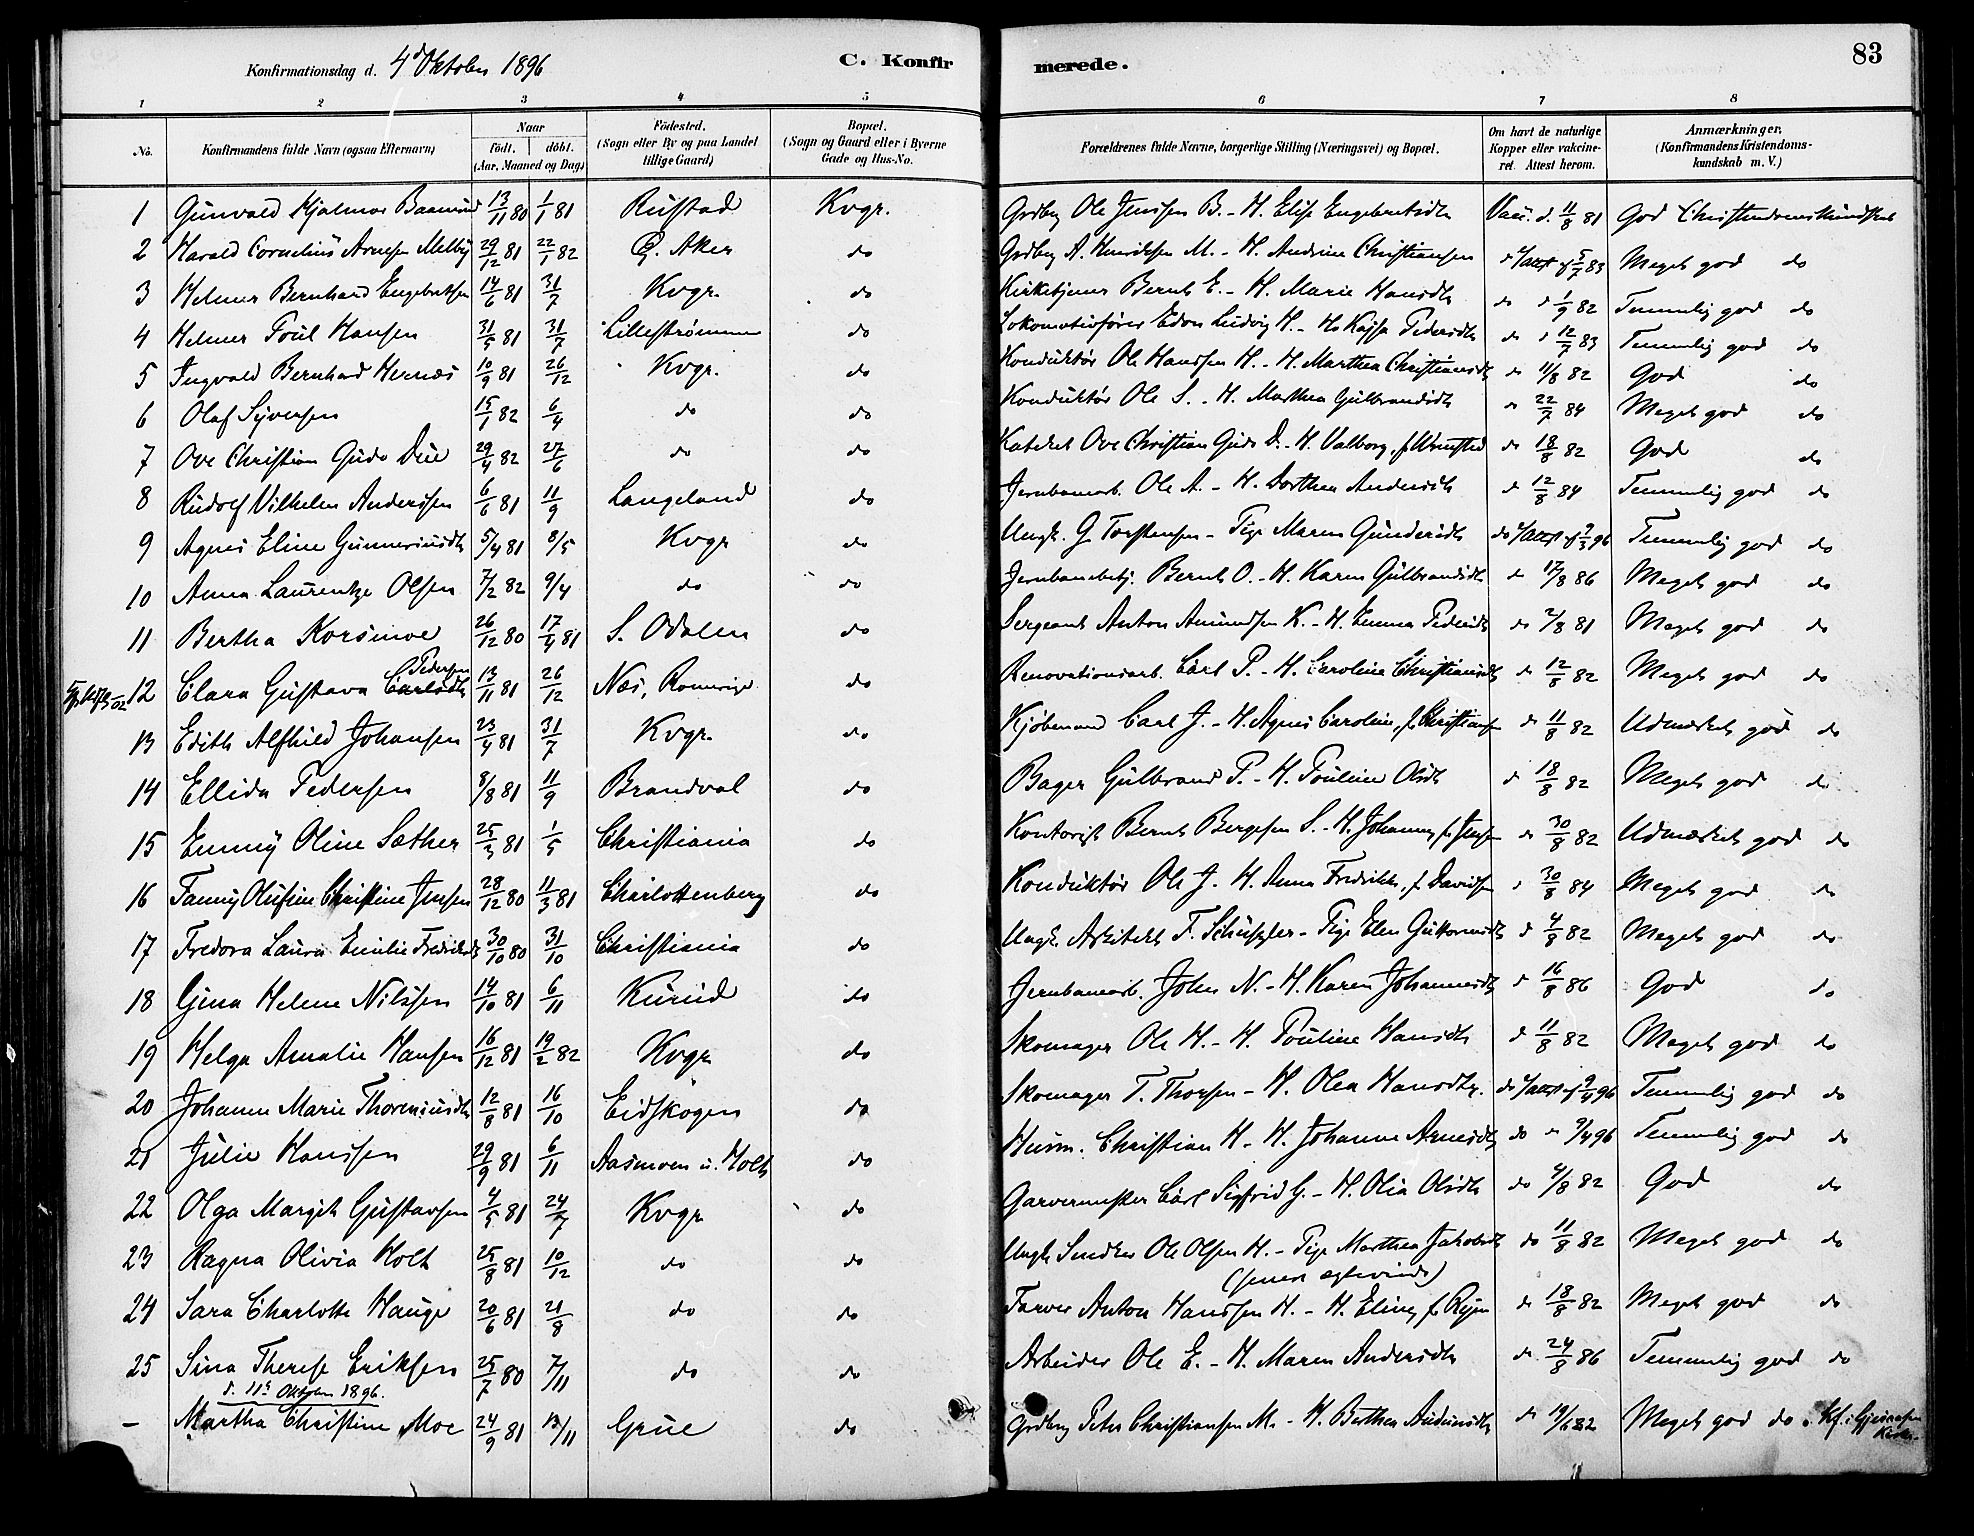 Konfirmationsdag d. 4d Oktober 1896
C. Konfirmerede. 83
1 2 3 4 5 6 7 8
No. Konfirmandens fulde Navn (ogsaa Efternavn) Naar födt. döbt. (Aar, Maaned og Dag) Födested. (Sogn eller By og paa Landet tillige Gaard) Bopæl. (Sogn og Gaard eller i Byerne Gade og Hus-No. Forældrenes fulde Navne, borgerlige Stilling (Næringsvei) og Bopæl. Om havt de naturlige Kopper eller vaccineret. Attest herom. Anmærkninger. (Konfirmandens Kristendomskundskab m. V.)
1 Gunvald Hjalmar 13/11 80 1/1 81 Rustad Kvgr. Grdbrg Ole Jenssen B. - H. Elise Engebretsdtr Vacc. d. 11/8 81 God Christendomskundskab
2 Harald Cornelius Arnesen Melby 29/12 81 22/1 82 Ø. Aker do Grdbrg A. Henriksen M. - H. Andrine Christiansen 5/7 83 Meget god do
3 Helmer Bernhard Engebretsen 14/6 81 31/7 Kvgr. do Kirketjener Bernt E. - H. Marie Hansdtr do 1/9 82 Temmelig god do
4 Helmer Poul Hansen 31/5 81 31/7 Lillestrømmen do Lokomotivfører Edon Ludvig H. - H. Kajsa Pedersdtr do 12/7 83 Temmelig god do
5 Ingvald Bernhard Hernæs 10/9 81 26/12 Kvgr. do Konduktør Ole Hanssen H. - H. Marthea Christiansdtr do 11/8 82 God do
6 Olaf Syversen 15/1 82 6/4 do do Konduktør Ole S. - H. Marthea Gulbrandsdtr do 22/7 84 Meget god do
7 Ove Christian Gude Due 29/4 82 27/6 do do Ove Christian Gude D. - H. Valborg, f. do 18/8 82 God do
8 Rudolf Vilhelm Anderssen 6/6 81 11/9 Langeland do Jernbanearb. Ole A. - H. Dorthea Andersdtr do 12/8 84 Temmelig god do
9 Agnes Eline Gunneriusdtr 5/4 81 8/5 Kvgr do Ungk. G. Torstensen - Pige Maren Gundersdtr do 9/3 96 Temmelig god do
10 Anna Laurentze Olsen 7/2 82 9/4 do do Jernbanebetj. Bernt O. - H. Karen Gulbrandsdtr do 17/8 86 Meget god do
11 Bertha Korsmoe 26/12 80 17/4 81 S. Odalen do Sergeant Anton Amundsen K. - H. Emma Pedersdtr do 2/8 81 Meget god do
12 Clara Gustava Carlsdtr Pedersen 13/11 81 26/12 Næs, Romerige do Renovationsarb. Carl P. - H. Caroline Christiansdtr do 12/8 82 Meget god do
13 Edith Alfhild Johansen 23/4 81 31/7 Kvgr. do Kjøbmand Carl J. - H. Agnes Caroline, f. Christiansen do 11/8 82 Udmærket god do
14 Ellida Pedersen 8/8 81 11/9 Brandval do Bager Gulbrand P. - H. Pouline Olsdtr d 18/8 82 Meget god do
15 Emmy Oline Sæther 25/3 81 1/5 Christiania do Kontorist Bernt Bergesen S. - H. Johanne, f. Jensen do 30/8 82 Udmærket god do
16 Fanny Olufine Christine Jensen 28/12 80 11/3 81 Charlottenberg do Konduktør Ole J. H. Anna Fredrikke, f. Davidsen d 30/8 84 Meget god do
17 Fredora Laura Emilie 30/10 80 31/10 Christiania do Ungk. Arkitekt F. Schüssler - Pige Elen Guttormsdtr d 4/8 82 Meget god do
18 Gina Helene Nilssen 14/10 81 6/11 Kurud do Jernbanearb. John N. - H. Karen Johannesdtr d 16/8 86 God do
19 Helga Amalie Hansen 16/12 81 19/2 82 Kvgr do Skomager Ole H. - H. Pouline Hansdtr d 11/8 82 Meget god do
20 Johanne Marie Thoreniusdtr 12/8 81 16/10 Eidskogen do Skomager T. Thorsen - H. Olea Hansdtr. do 9/4 96 Temmelig god do
21 Julie Hanssen 29/9 81 6/11 Aasmoen u. Holt do Husm. Christian H - H. Johanne Arnesdtr do 9/4 96 Temmelig god do
22 Olga Margit Gustavsen 4/5 81 24/7 Kvgr do Garvermester Carl Sigfrid G. - H. Olia Olsdtr do 4/8 82 God do
23 Ragna Olivia Holt 25/8 81 10/12 do do Ungk. Snedker Ole Olsen H. - Pige Marthea Jakobsdtr do 11/8 82 Meget god do
(senere egteviede)
24 Sara Charlotte Hauge 20/6 81 21/8 do do Farver Anton Hanssen H. - H. Eline, f. do 18/8 82 Meget god do
25 Sina Therese Eriksen 25/7 80 7/11 do do Arbeider Ole E. - H. Maren Andersdtr do 24/8 86 Temmelig god do
d. 11te Oktober 1896.
- Martha Christine Moe 24/9 81 13/11 Grue do Grdbrg Peter Christiansen M. - H. Berthea Audunsdtr do 19/6 82 Meget god do. Kf. i Gjesaasen Kirke.